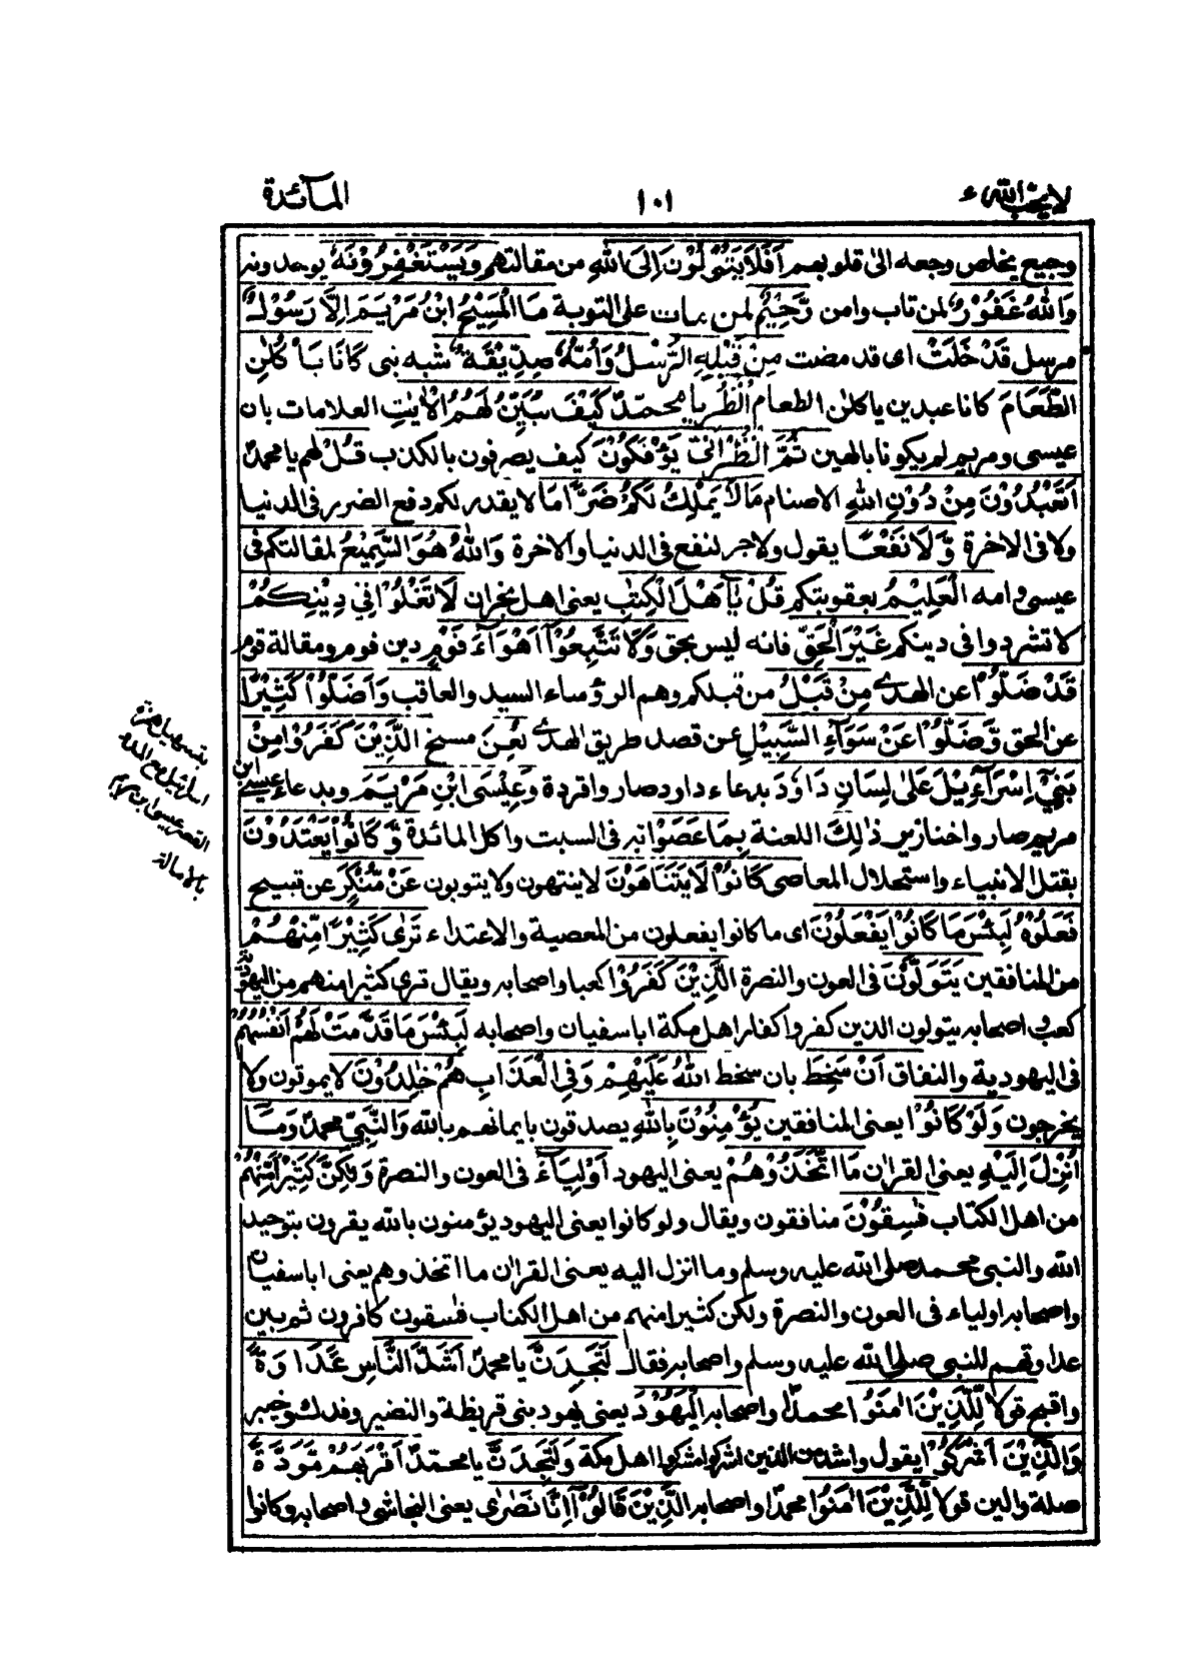 لا يحب الله ٦
١٠١
المآئدة
وجيع يخلص وجعه الى قلوبهم اَفَلَا يَتُوْبُوْنَ اِلَى اللّٰهِ من مقالتهم وَيَسْتَغْفِرُوْنَهٗ يوحدونه
وَاللّٰهُ غَفُوْرٌ لمن تاب وامن رَّحِيْمٌ لمن مات على التوبة مَا الْمَسِيْحُ ابْنُ مَرْيَمَ اِلَّا رَسُوْلٌ
مرسل قَدْ خَلَتْ اى قد مضت مِنْ قَبْلِهِ الرُّسُلُ وَاُمُّهٗ صِدِّيْقَةٌ شبه نبى كَانَا يَاْكُلٰنِ
الطَّعَامَ كانا عبدين ياكلان الطعام اُنْظُرْ يا محمد كَيْفَ نُبَيِّنُ لَهُمُ الْاٰيٰتِ العلامات بان
عيسى ومريم لم يكونا بالهين ثُمَّ انْظُرْ اَنّٰى يُؤْفَكُوْنَ كيف يصرفون بالكذب قُلْ لهم يا محمد
اَتَعْبُدُوْنَ مِنْ دُوْنِ اللّٰهِ الاصنام مَا لَا يَمْلِكُ لَكُمْ ضَرًّا ما لا يقدر لكم دفع الضرر فى الدنيا
ولا فى الاخرة وَّلَا نَفْعًا يقول ولا جر لنفع فى الدنيا والاخرة وَاللّٰهُ هُوَ السَّمِيْعُ لمقالتكم فى
عيسى وامه الْعَلِيْمُ بعقوبتكم قُلْ يٰٓاَهْلَ الْكِتٰبِ يعنى اهل نجران لَا تَغْلُوْا فِيْ دِيْنِكُمْ
لا تشردوا فى دينكم غَيْرَ الْحَقِّ فانه ليس بحق وَلَا تَتَّبِعُوْٓا اَهْوَآءَ قَوْمٍ دين قوم ومقالة قوم
قَدْ ضَلُّوْا عن الهدى مِنْ قَبْلُ من قبلكم وهم الرؤساء السيد والعاقب وَاَضَلُّوْا كَثِيْرًا
عن الحق وَّضَلُّوْا عَنْ سَوَآءِ السَّبِيْلِ عن قصد طريق الهدى لُعِنَ مسخ الَّذِيْنَ كَفَرُوْا مِنْۢ
بَنِيْٓ اِسْرَآءِيْلَ عَلٰى لِسَانِ دَاوٗدَ بدعاء داود صاروا قردة وَعِيْسَى ابْنِ مَرْيَمَ وبدعاء عيسى ابن
مريم صاروا خنازير ذٰلِكَ اللعنة بِمَا عَصَوْا به فى السبت واكل المائدة وَّكَانُوْا يَعْتَدُوْنَ
بقتل الانبياء واستحلال المعاصى كَانُوْا لَا يَتَنَاهَوْنَ لا ينتهون ولا يتوبون عَنْ مُّنْكَرٍ عن قبيح
فَعَلُوْهُ لَبِئْسَ مَا كَانُوْا يَفْعَلُوْنَ اى ما كانوا يفعلون من المعصية والاعتداء تَرٰى كَثِيْرًا مِّنْهُمْ
من المنافقين يَتَوَلَّوْنَ فى العون والنصرة الَّذِيْنَ كَفَرُوْا كعبا واصحابه ويقال ترى كثيرا منهم من اليهود
كعب واصحابه يتولون الذين كفروا كفار اهل مكة ابا سفيان واصحابه لَبِئْسَ مَا قَدَّمَتْ لَهُمْ اَنْفُسُهُمْ
فى اليهودية والنفاق اَنْ سَخِطَ بان سخط اللّٰهُ عَلَيْهِمْ وَفِي الْعَذَابِ هُمْ خٰلِدُوْنَ لا يموتون ولا
يخرجون وَلَوْ كَانُوْا يعنى المنافقين يُؤْمِنُوْنَ بِاللّٰهِ يصدقون بايمانهم بالله وَالنَّبِيِّ محمد وَمَآ
اُنْزِلَ اِلَيْهِ يعنى القران مَا اتَّخَذُوْهُمْ يعنى اليهود اَوْلِيَآءَ فى العون والنصرة وَلٰكِنَّ كَثِيْرًا مِّنْهُمْ
من اهل الكتاب فٰسِقُوْنَ منافقون ويقال ولو كانوا يعنى اليهود يؤمنون بالله يقرون بتوحيد
الله والنبى محمد صلى الله عليه وسلم وما انزل اليه يعنى القران ما اتخذوهم يعنى ابا سفيان
واصحابه اولياء فى العون والنصرة ولكن كثيرا منهم من اهل الكتاب فٰسقون كافرون ثم بين
عداوتهم للنبى صلى الله عليه وسلم واصحابه فقال لَتَجِدَنَّ يا محمد اَشَدَّ النَّاسِ عَدَاوَةً
واقبح قولا لِّلَّذِيْنَ اٰمَنُوا محمد واصحابه الْيَهُوْدَ يعنى يهود بنى قريظة والنضير وفدك وخيبر
وَالَّذِيْنَ اَشْرَكُوْا يقول واشد من الذين اشركوا مشركوا اهل مكة وَلَتَجِدَنَّ يا محمد اَقْرَبَهُمْ مَّوَدَّةً
صلة والين قولا لِّلَّذِيْنَ اٰمَنُوا محمد واصحابه الَّذِيْنَ قَالُوْٓا اِنَّا نَصٰرٰى يعنى النجاشى واصحابه وكانوا
بتسهيل همزة
اسرائيل مع المد و
القصر عيسى ابن مريم
بالامالة